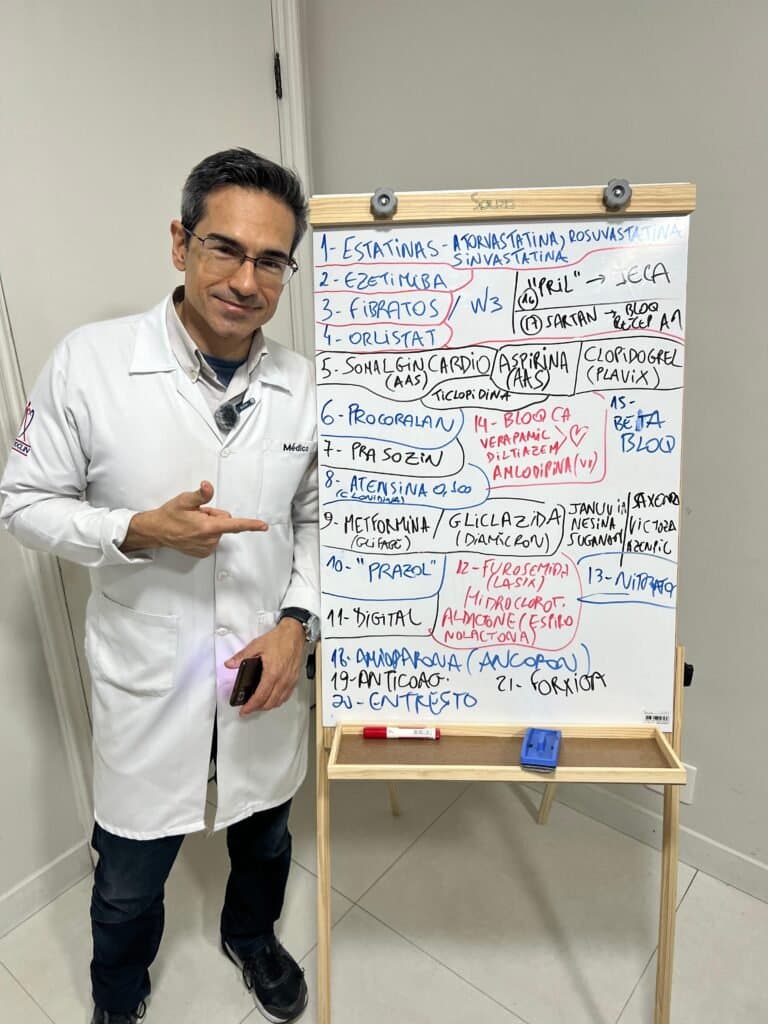 1- ESTATINAS - ATORVASTATINA, ROSUVASTATINA
SINVASTATINA
2- EZETIMIBA
3- FIBRATOS / W3
4- ORLISTAT
16 "PRIL" → JECA
17 SARTAN → BLOQ
RECEP
5- SOMALGIN CARDIO
(AAS)
ASPIRINA
(AAS)
CLOPIDOGREL
(PLAVIX)
TICLOPIDINA
6- PROCORALAN
7- PRASOZIN
8- ATENSINA 0,100
(CLONIDINA)
14- BLOQ CA
VERAPAMIL
DILTIAZEM
ANLODIPINA
15-
BETA
BLOQ
9- METFORMINA /
(GLIFAGE)
GLICLAZIDA
(DIAMICRON)
JANUVIA
NESINA
SAXENDA
VICTOZA
OZEMPIC
10- "PRAZOL"
11- DIGITAL
12- FUROSEMIDA
(LASIX)
HIDROCLOROT.
ALDACTONE (ESPIRO
NOLACTONA)
13- NITRATO
18- AMIODARONA (ANCORON)
19- ANTICOAG.
21- FORXIGA
20- ENTRESTO
Médico